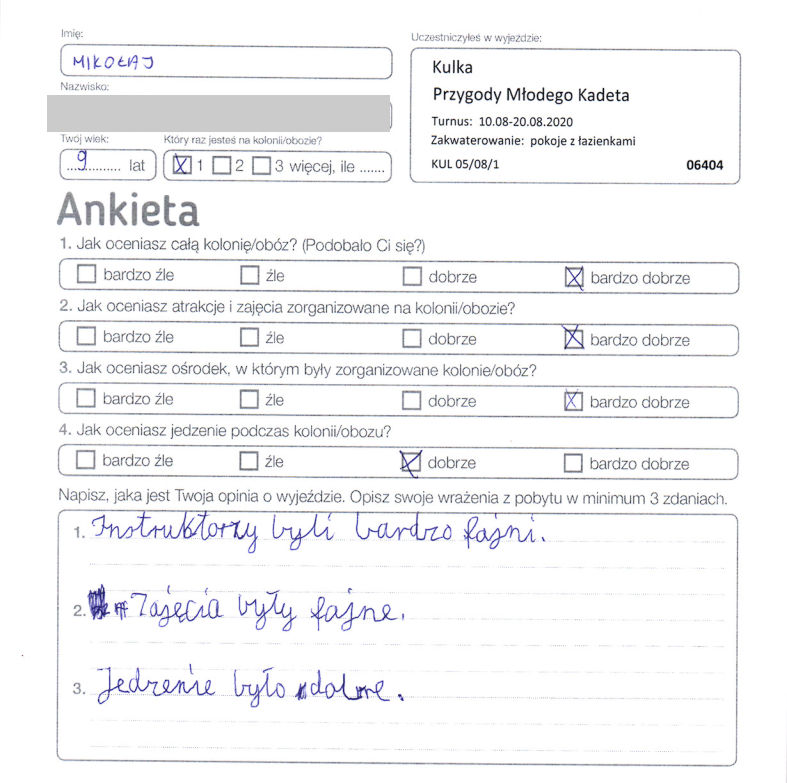 Imię:
MIKOŁAJ
Uczestniczyłeś w wyjeździe:
Kulka
Przygody Młodego Kadeta
Turnus: 10.08-20.08.2020
Zakwaterowanie: pokoje z łazienkami
KUL 05/08/1 06404
Nazwisko:
Twój wiek:
...9.......... lat
Który raz jesteś na kolonii/obozie?
1 2 3 więcej, ile .......
Ankieta
1. Jak oceniasz całą kolonię/obóz? (Podobało Ci się?)
bardzo źle źle dobrze bardzo dobrze
2. Jak oceniasz atrakcje i zajęcia zorganizowane na kolonii/obozie?
bardzo źle źle dobrze bardzo dobrze
3. Jak oceniasz ośrodek, w którym były zorganizowane kolonie/obóz?
bardzo źle źle dobrze bardzo dobrze
4. Jak oceniasz jedzenie podczas kolonii/obozu?
bardzo źle źle dobrze bardzo dobrze
Napisz, jaka jest Twoja opinia o wyjeździe. Opisz swoje wrażenia z pobytu w minimum 3 zdaniach.
1. Instruktorzy byli bardzo fajni.
2. Zajęcia były fajne.
3. Jedzenie było dobre.